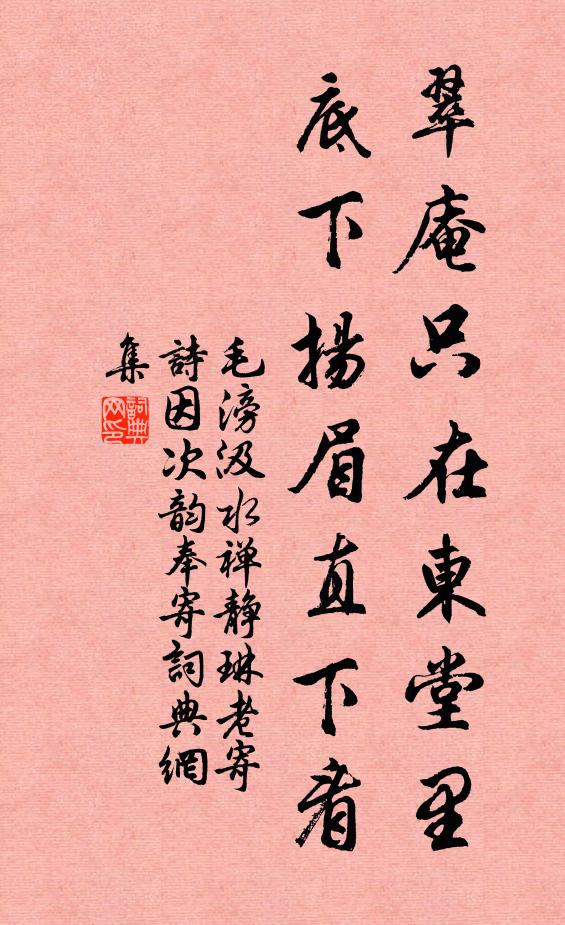 翠庵只在東堂里
底下揚眉直下看
毛滂汲水禅静琳老寄
詩因次韵奉寄詞典網
集
詞典网印